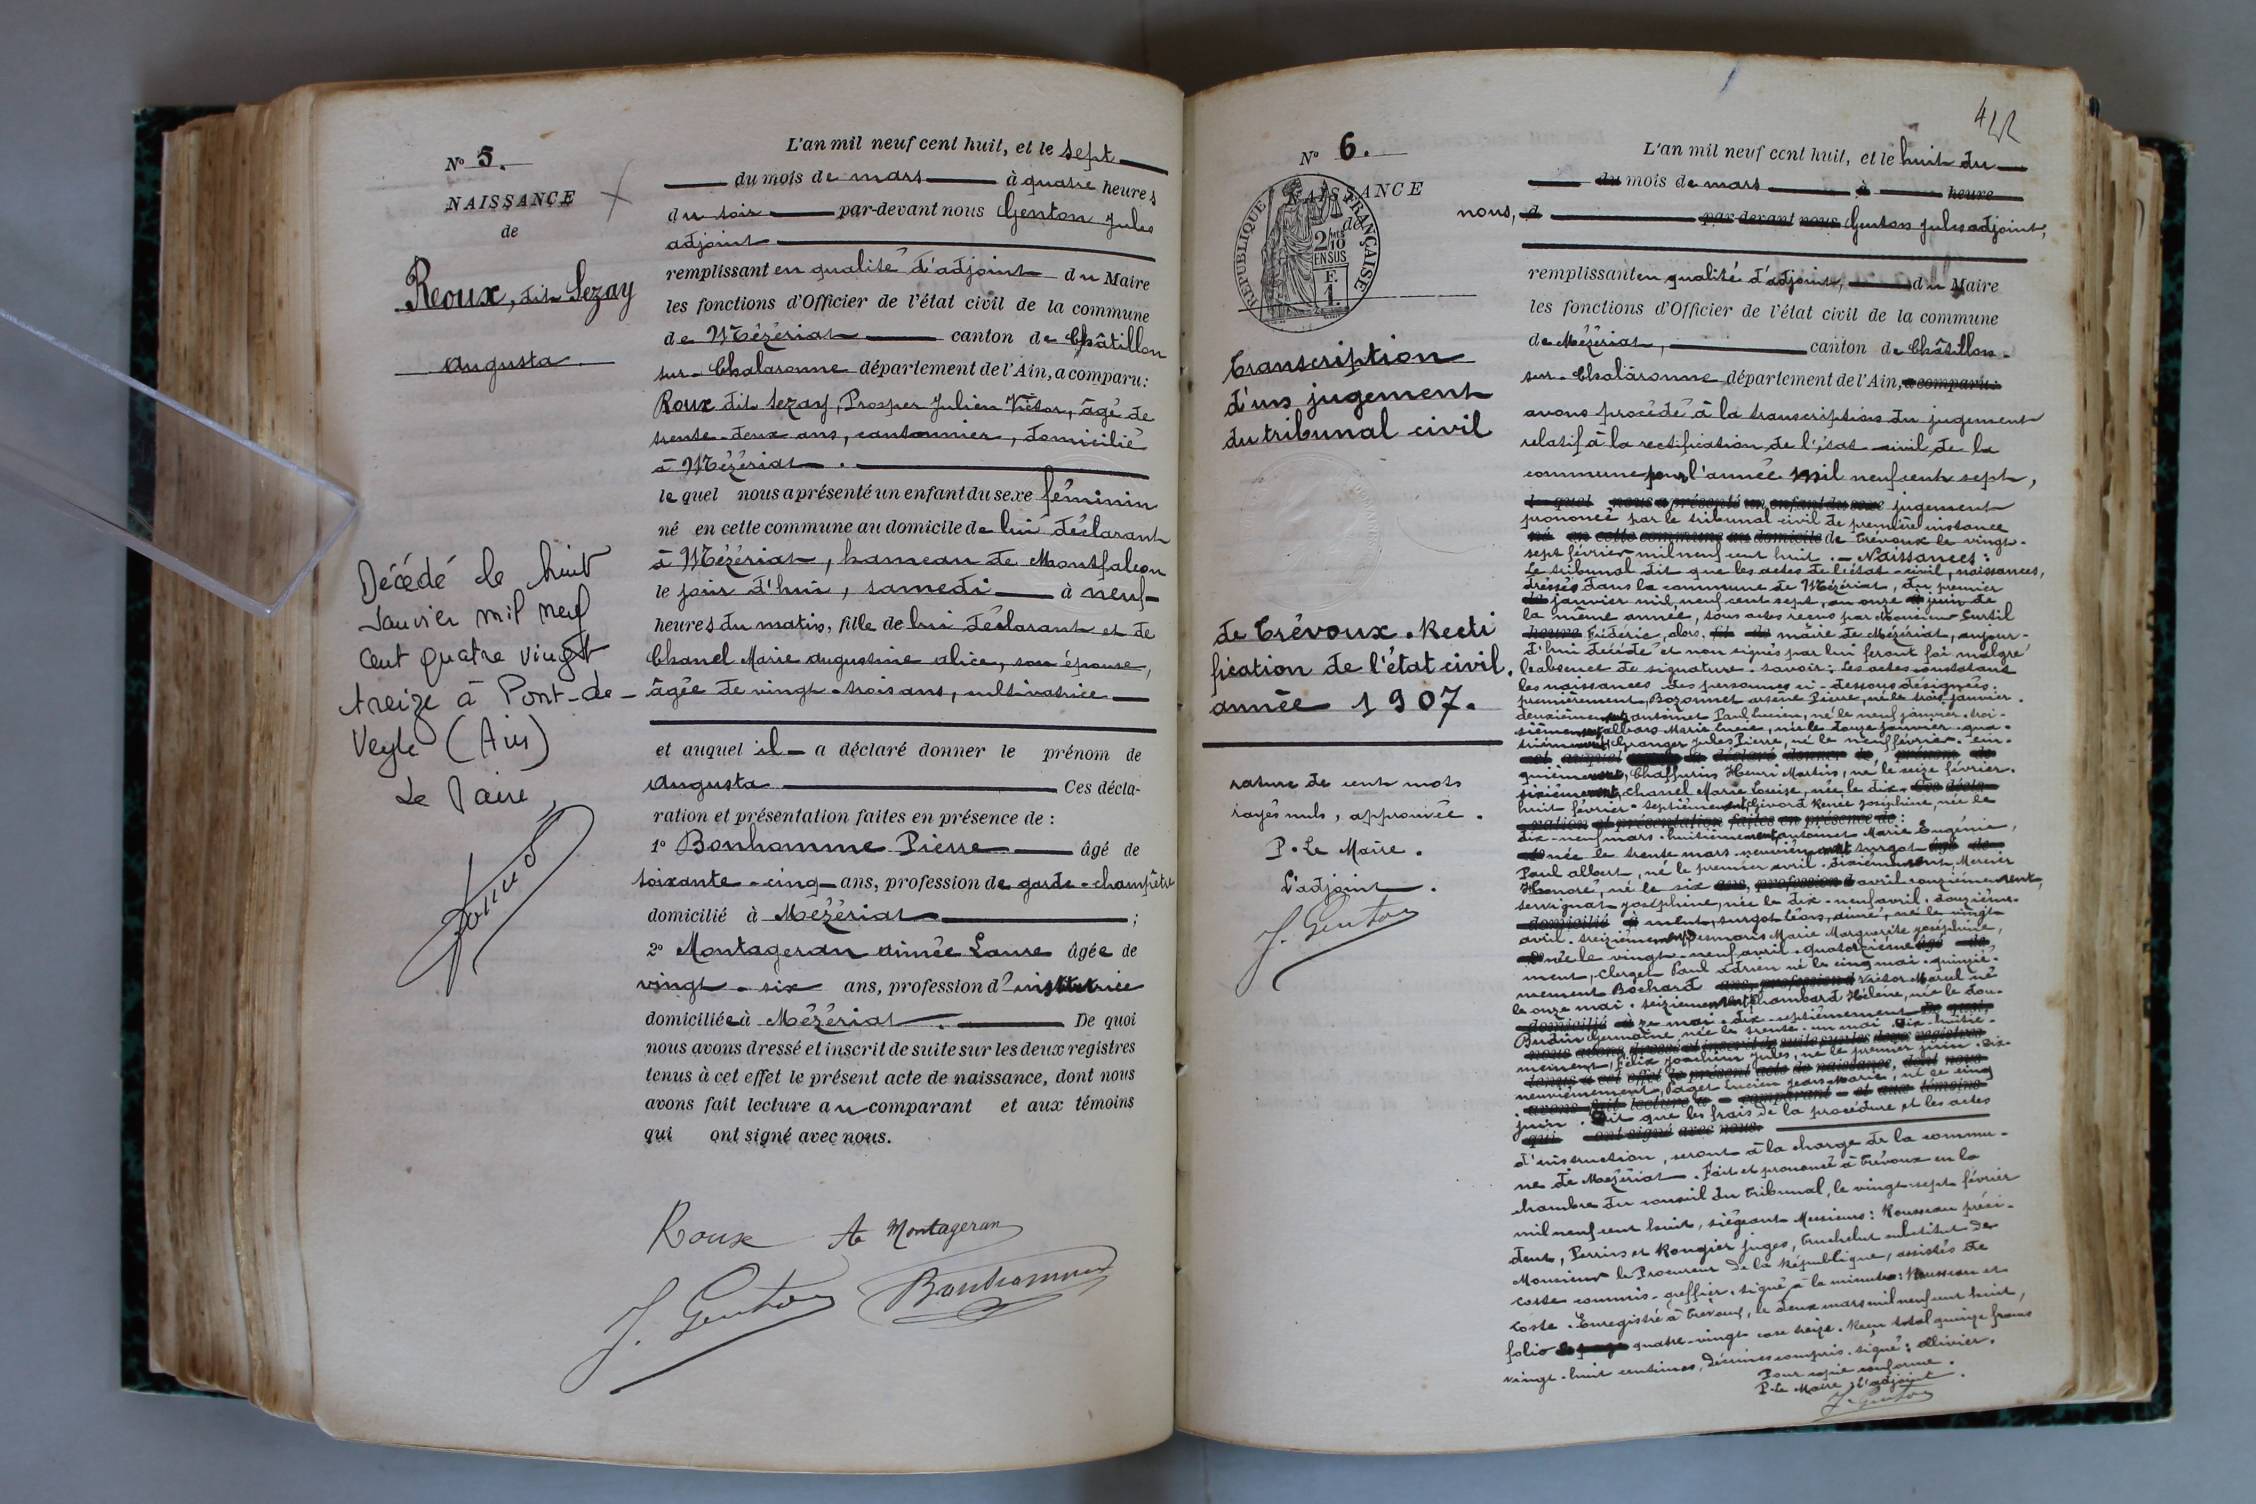 N° 5.
NAISSANCE
de
Reoux, dit Sezay
Augusta
Décédé le huit
Janvier mil neuf
cent quatre vingt
treize à Pont-de-
Veyle (Ain)
Le Maire,
L'an mil neuf cent huit, et le sept
du mois de mars à quatre heures
du soir par-devant nous Genton Jules
adjoint
remplissant en qualité d'adjoint du Maire
les fonctions d'Officier de l'état civil de la commune
de Mézériat canton de Châtillon
sur-Chalaronne département de l'Ain, a comparu:
Roux dit Sezay, Prosper Julien Victor, âgé de
trente-deux ans, cantonnier, domicilié
à Mézériat.
le quel nous a présenté un enfant du sexe féminin
né en cette commune au domicile de lui déclarant
à Mézériat, hameau de Montfalcon
le jour d'hui, samedi à neuf
heures du matin, fille de lui déclarant et de
Chanel Marie Augustine Alice, son épouse,
âgée de vingt-trois ans, cultivatrice
et auquel il a déclaré donner le prénom de
Augusta Ces décla-
ration et présentation faites en présence de :
1° Bonhomme Pierre âgé de
soixante-cinq ans, profession de garde-champêtre
domicilié à Mézériat ;
2° Montageran Aimée Laure âgée de
vingt-six ans, profession d'institutrice
domiciliée à Mézériat. De quoi
nous avons dressé et inscrit de suite sur les deux registres
tenus à cet effet le présent acte de naissance, dont nous
avons fait lecture au comparant et aux témoins
qui ont signé avec nous.
Roux A Montageran
J. Genton Bonhomme
N° 6.
NAISSANCE
de
RÉPUBLIQUE FRANÇAISE
2/10
EN SUS
F.
1.
Transcription
d'un jugement
du tribunal civil
de Trévoux. Recti
fication de l'état civil.
année 1907.
rature de cent mots
rayés nuls, approuvée.
P. Le Maire.
L'adjoint.
J. Genton
L'an mil neuf cent huit, et le huit du
du mois de mars à heure
nous, d par devant nous Genton Jules adjoint,
remplissant en qualité d'adjoint, du Maire
les fonctions d'Officier de l'état civil de la commune
de Mézériat, canton de Châtillon-
sur-Chalaronne département de l'Ain, a comparu:
avons procédé à la transcription du jugement
relatif à la rectification de l'état civil de la
commune pour l'année mil neuf cent sept,
le quel nous a présenté un enfant du sexe jugement
prononcé par le tribunal civil de première instance
né en cette commune au domicile de Trévoux le vingt-
sept février mil neuf cent huit. - Naissances:
Le tribunal dit que les actes de l'état-civil, naissances,
dressés dans la commune de Mézériat, du premier
janvier mil neuf cent sept, au onze juin de
la même année, sous actes reçus par Monsieur
heures Frédéric, alors maire de Mézériat, aujour-
d'hui décédé et non signés par lui feront foi malgré
l'absence de signature. savoir: Les actes constatant
les naissances des personnes ci-dessous désignées.
premièrement, Bozonnet Arsène Pierre, né le trois janvier.
deuxièmement, Antoinet Paul Lucien, né le neuf janvier. troi-
sièmement, Marie Lucie, née le douze janvier. qua-
trièmement, Granger Jules Pierre, né le neuf février. cin-
et auquel a déclaré donner le prénom de
quièmement, Chaffurin Henri Martin, né le seize février.
sixièmement, Chanel Marie Louise, née le dix- Ces décla-
huit février. septièmement, Givord Renée Joséphine, née le
ration et présentation faites en présence de :
dix-neuf mars. huitièmement, Antoinet Marie Eugénie,
née le trente mars. neuvièmement Surgot âgé de
Paul Albert, né le premier avril. dixièmement, Mercier
Honoré, né le six ans, profession d avril. onzièmement,
Servignat Joséphine, née le dix-neuf avril. douzième-
domicilié à ment, Surgot Léon, Aimé, né le vingt
avril. treizièmement, Desmaris Marie Marguerite Joséphine,
née le vingt-neuf avril. quatorzième âgé de
ment, Clerget Paul Adrien né le cinq mai. quinziè-
mement Bochard ans, profession d Victor Marcel né
le onze mai. seizièmement, Chambard Hélène, née le dou-
domicilié à ze mai. dix-septièmement De quoi
Budin Germaine, née le trente-un mai. dix-huitiè-
nous avons dressé et inscrit de suite sur les deux registres
mement, Félix Joachim Jules, né le premier juin. dix-
tenus à cet effet le présent acte de naissance, dont nous
neuvièmement, Paget Lucien Jean-Marie, né le cinq
avons fait lecture a comparant et aux témoins
juin. Dit que les frais de la procédure et les actes
qui ont signé avec nous.
d'instruction, seront à la charge de la commu-
ne de Mézériat. Fait et prononcé à Trévoux en la
chambre du conseil du tribunal, le vingt-sept février
mil neuf cent huit, siégeant Messieurs: Rousseau prési-
dent, Perrin et Rougier juges, Truchelut substitut de
Monsieur le Procureur de la République, assistés de
Coste commis-greffier. signé à la minute: Rousseau et
Coste. Enregistré à Trévoux, le deux mars mil neuf cent huit,
folio quatre-vingt case treize. Reçu total quinze francs
vingt-huit centimes, décimes compris. signé: Ollivier.
Pour copie conforme.
P. Le Maire, L'adjoint.
J. Genton